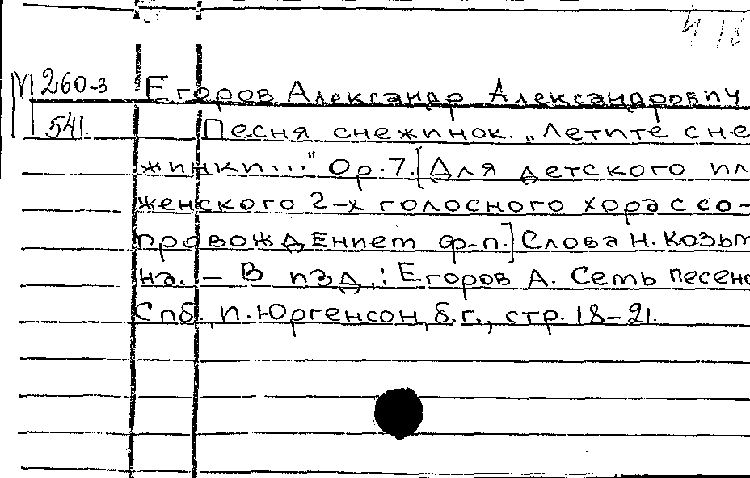 М 260-3 Егоров Александр Александрович
541 Песня снежинок. „Летите сне
жинки..." Ор. 7. [Для детского или
женского 2-х голосного хора с со-
провождением ф-п.] Слова Н. Козьм
на. — В изд.: Егоров А. Семь песено
Спб., П. Юргенсон, б.г., стр. 18-21.